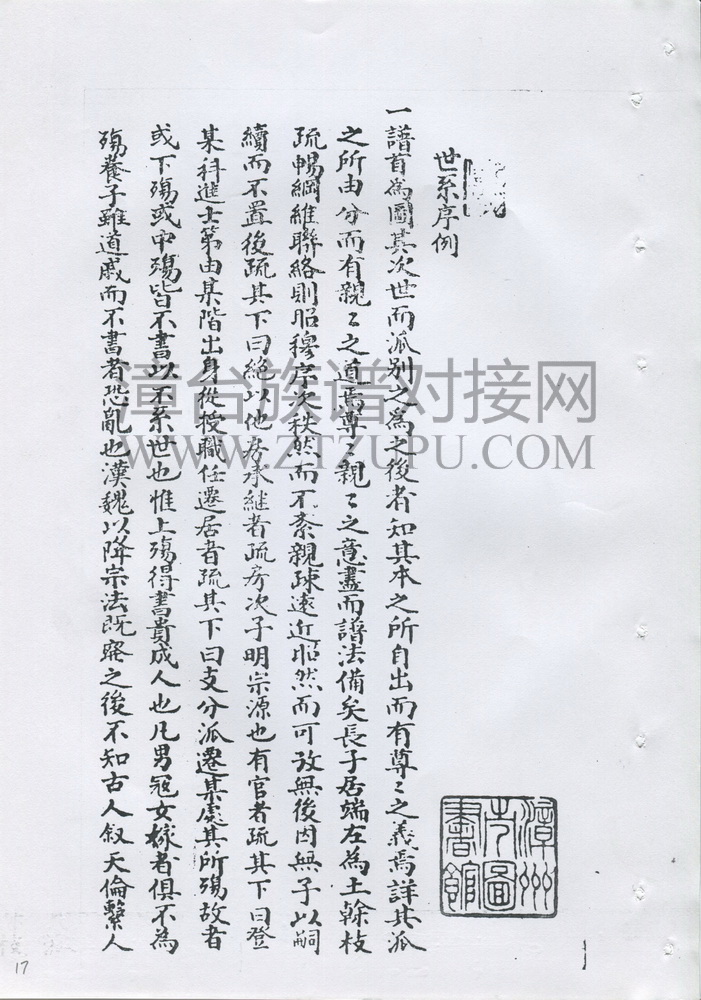 世系序例
一譜首為圖其次世而派别之為之後者知其本之所自出而有尊〻之義焉詳其派
之所由分而有親〻之道焉尊〻親〻之意盡而譜法備矣長子居端左為主榦枝
疏暢綱維聯絡則昭穆序次秩然而不紊親疎遠近昭然而可攷無後因無子以嗣
續而不置後疏其下曰絶以他房承継者疏房次子明宗源也有官者疏其下曰登
某科進士第由某階出身從授職任遷居者疏其下曰支分派遷某處其所殤故者
或下殤或中殤皆不書以不系世也惟上殤得書貴成人也凡男冠女嫁者俱不為
殤養子雖道戚而不書者恐亂也漢魏以降宗法既廢之後不知古人叙天倫繫人
漳州
市圖
書館
漳台族谱对接网
WWW.ZTZUPU.COM
17